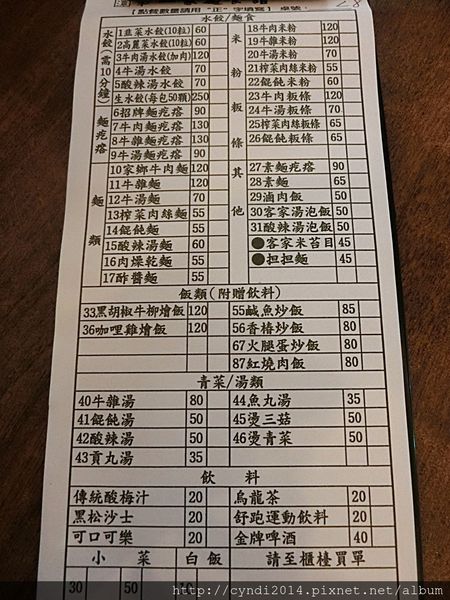 【點餐數量請用"正"字填寫】 桌號：28
水餃/麵食
水餃(需10分鐘)
1韭菜水餃(10粒) 60
2高麗菜水餃(10粒) 60
3牛肉湯水餃(加肉) 120
4牛湯水餃 70
5酸辣湯水餃 70
生水餃(每包50顆) 250
麵疙瘩
6招牌麵疙瘩 90
7牛肉麵疙瘩 130
8牛雜麵疙瘩 130
9牛湯麵疙瘩 90
麵類
10家鄉牛肉麵 120
11牛雜麵 120
12牛湯麵 70
13榨菜肉絲麵 55
14餛飩麵 55
15酸辣湯麵 60
16肉燥乾麵 55
17酢醬麵 55
米粉粄條
18牛肉米粉 120
19牛雜米粉 120
20牛湯米粉 70
21榨菜肉絲米粉 55
22餛飩米粉 60
23牛肉粄條 120
24牛湯粄條 70
25榨菜肉絲粄條 65
26餛飩粄條 65
其他
27素麵疙瘩 90
28素麵 65
29滷肉飯 50
30客家湯泡飯 50
31酸辣湯泡飯 50
●客家米苔目 45
●担担麵 45
飯類(附贈飲料)
33黑胡椒牛柳燴飯 120
36咖哩雞燴飯 120
55鹹魚炒飯 85
56香椿炒飯 80
67火腿蛋炒飯 80
87紅燒肉飯 80
青菜/湯類
40牛雜湯 80
41餛飩湯 50
42酸辣湯 50
43貢丸湯 35
44魚丸湯 35
45燙三菇 50
46燙青菜 50
飲料
傳統酸梅汁 20
黑松沙士 20
可口可樂 20
烏龍茶 20
舒跑運動飲料 20
金牌啤酒 40
小菜 白飯 請至櫃檯買單
30 50 10
http://cyndi2014.pixnet.net/album